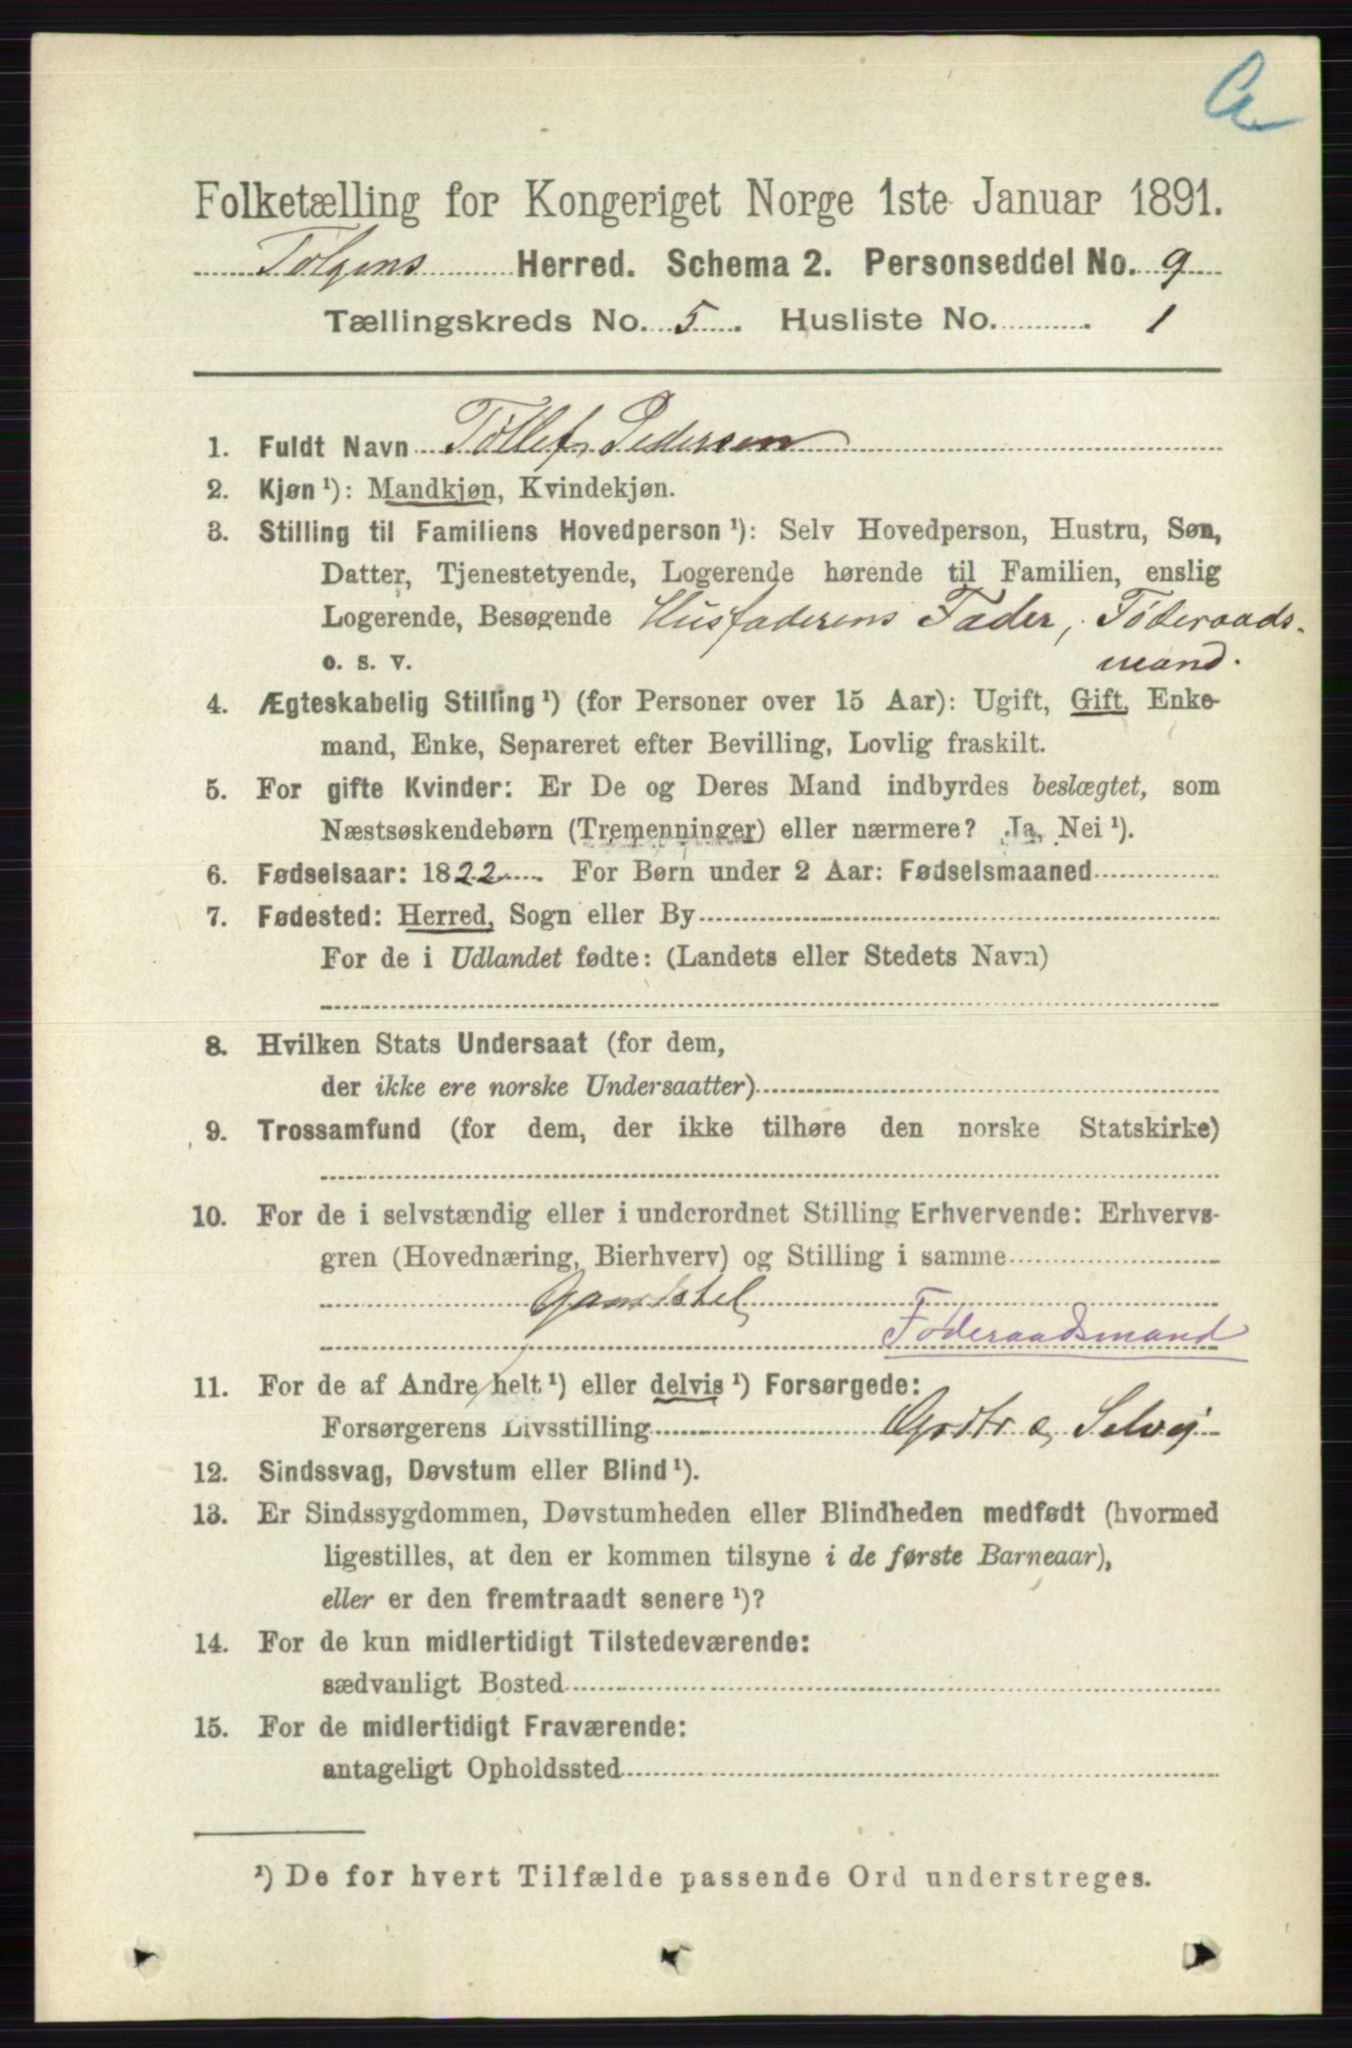 Folketælling for Kongeriget Norge 1ste Januar 1891.
Tolgens Herred. Schema 2. Personseddel No. 9
Tællingskreds No. 5. Husliste No. 1
1. Fuldt Navn Tollef Pedersen
2. Kjøn ¹): Mandkjøn, Kvindekjøn.
3. Stilling til Familiens Hovedperson ¹): Selv Hovedperson, Hustru, Søn,
Datter, Tjenestetyende, Logerende hørende til Familien, enslig
Logerende, Besøgende Husfaderens Fader, Føderaads-
o. s. v. mand.
4. Ægteskabelig Stilling ¹) (for Personer over 15 Aar): Ugift, Gift, Enke-
mand, Enke, Separeret efter Bevilling, Lovlig fraskilt.
5. For gifte Kvinder: Er De og Deres Mand indbyrdes beslægtet, som
Næstsøskendebørn (Tremenninger) eller nærmere? Ja, Nei ¹).
6. Fødselsaar: 1822. For Børn under 2 Aar: Fødselsmaaned
7. Fødested: Herred, Sogn eller By
For de i Udlandet fødte: (Landets eller Stedets Navn)
8. Hvilken Stats Undersaat (for dem,
der ikke ere norske Undersaatter)
9. Trossamfund (for dem, der ikke tilhøre den norske Statskirke)
10. For de i selvstændig eller i underordnet Stilling Erhvervende: Erhvervs-
gren (Hovednæring, Bierhverv) og Stilling i samme
Føderaadsmand
11. For de af Andre helt ¹) eller delvis ¹) Forsørgede:
Forsørgerens Livsstilling Selvej
12. Sindssvag, Døvstum eller Blind ¹).
13. Er Sindssygdommen, Døvstumheden eller Blindheden medfødt (hvormed
ligestilles, at den er kommen tilsyne i de første Barneaar),
eller er den fremtraadt senere ¹)?
14. For de kun midlertidigt Tilstedeværende:
sædvanligt Bosted
15. For de midlertidigt Fraværende:
antageligt Opholdssted
¹) De for hvert Tilfælde passende Ord understreges.